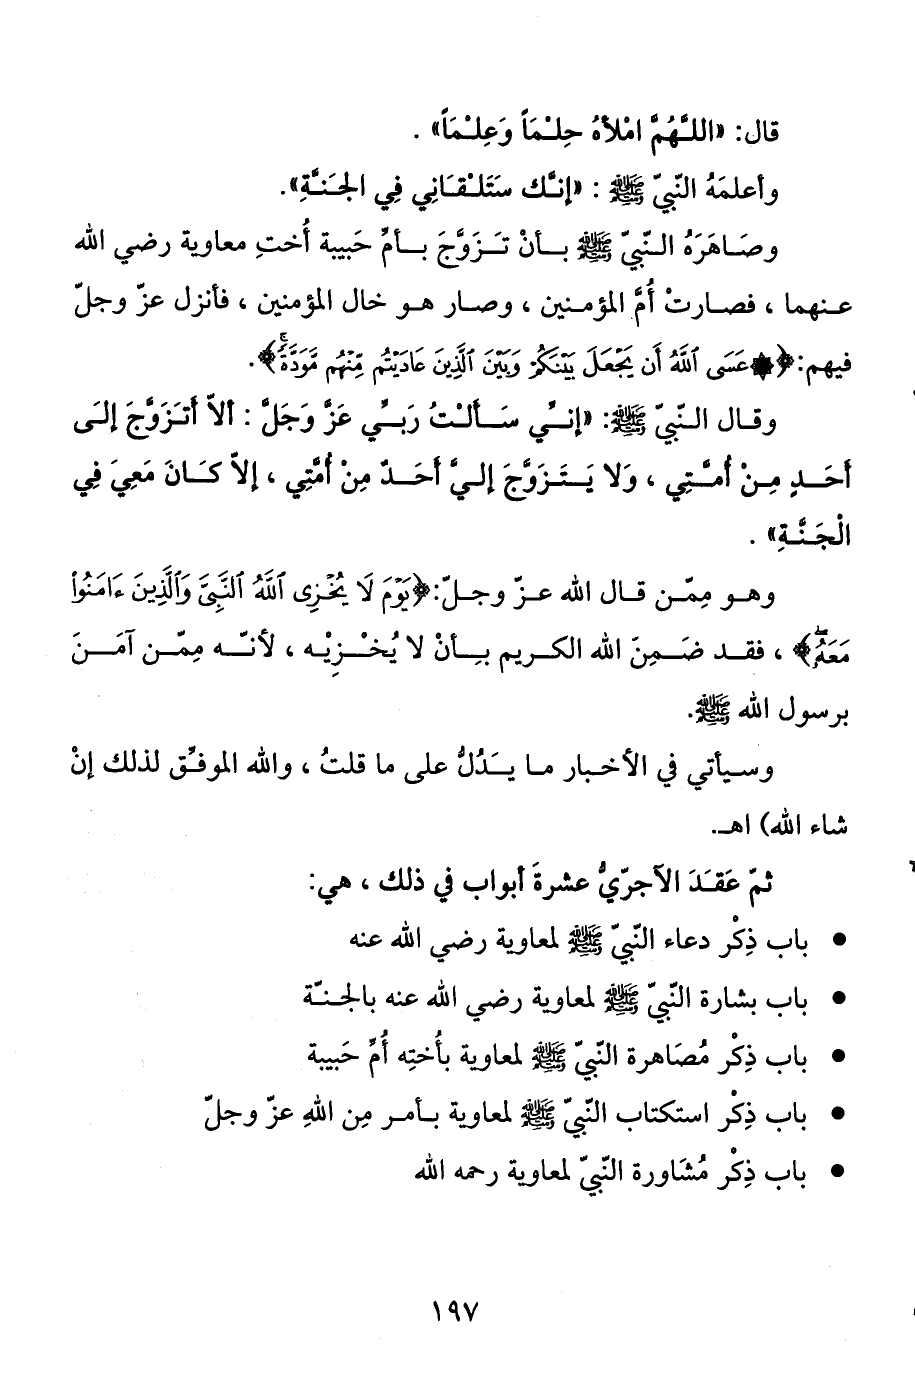 قال: «اللَّهُمَّ امْلأهُ حِلْمَاً وَعِلْمَاً» .
وأعلمَهُ النّبيّ ﷺ : «إنَّك سَتَلْقَانِي فِي الجَنَّةِ».
وصَاهَرَهُ النّبيّ ﷺ بأنْ تَزَوَّجَ بأمِّ حَبيبة أُختِ معاوية رضي الله
عنهما ، فصارتْ أُمَّ المؤمنين ، وصار هو خال المؤمنين ، فأنزل عزّ وجلّ
فيهم: ﴿۞ عَسَى ٱللَّهُ أَن يَجْعَلَ بَيْنَكُمْ وَبَيْنَ ٱلَّذِينَ عَادَيْتُم مِّنْهُم مَّوَدَّةً ۚ﴾.
وقال النّبيّ ﷺ: «إنِّي سَألتُ رَبِّي عَزَّ وَجَلَّ : ألاّ أتَزَوَّجَ إلَى
أحَدٍ مِنْ أُمَّتِي ، وَلا يَتَزَوَّجَ إليَّ أحَدٌ مِنْ أُمَّتِي ، إلاّ كَانَ مَعِيَ فِي
الْجَنَّةِ» .
وهو مِمّن قال الله عزّ وجلّ: ﴿يَوْمَ لَا يُخْزِى ٱللَّهُ ٱلنَّبِىَّ وَٱلَّذِينَ ءَامَنُوا۟
مَعَهُۥ ۖ﴾ ، فقد ضَمِنَ الله الكريم بأنْ لا يُخْزِيْه ، لأنّه مِمّن آمَنَ
برسول الله ﷺ.
وسيأتي في الأخبار ما يَدُلُّ على ما قلتُ ، والله الموفِّق لذلك إنْ
شاء الله) اهـ.
ثمّ عَقَدَ الآجرّيُّ عشرةَ أبواب في ذلك ، هي:
• باب ذِكْر دعاء النّبيّ ﷺ لمعاوية رضي الله عنه
• باب بشارة النّبيّ ﷺ لمعاوية رضي الله عنه بالجنّة
• باب ذِكْر مُصَاهرة النّبيّ ﷺ لمعاوية بأُختِه أُمِّ حَبيبة
• باب ذِكْر استكتاب النّبيّ ﷺ لمعاوية بأمر مِن اللهِ عزّ وجلّ
• باب ذِكْر مُشَاورة النّبيّ لمعاوية رحمه الله
١٩٧